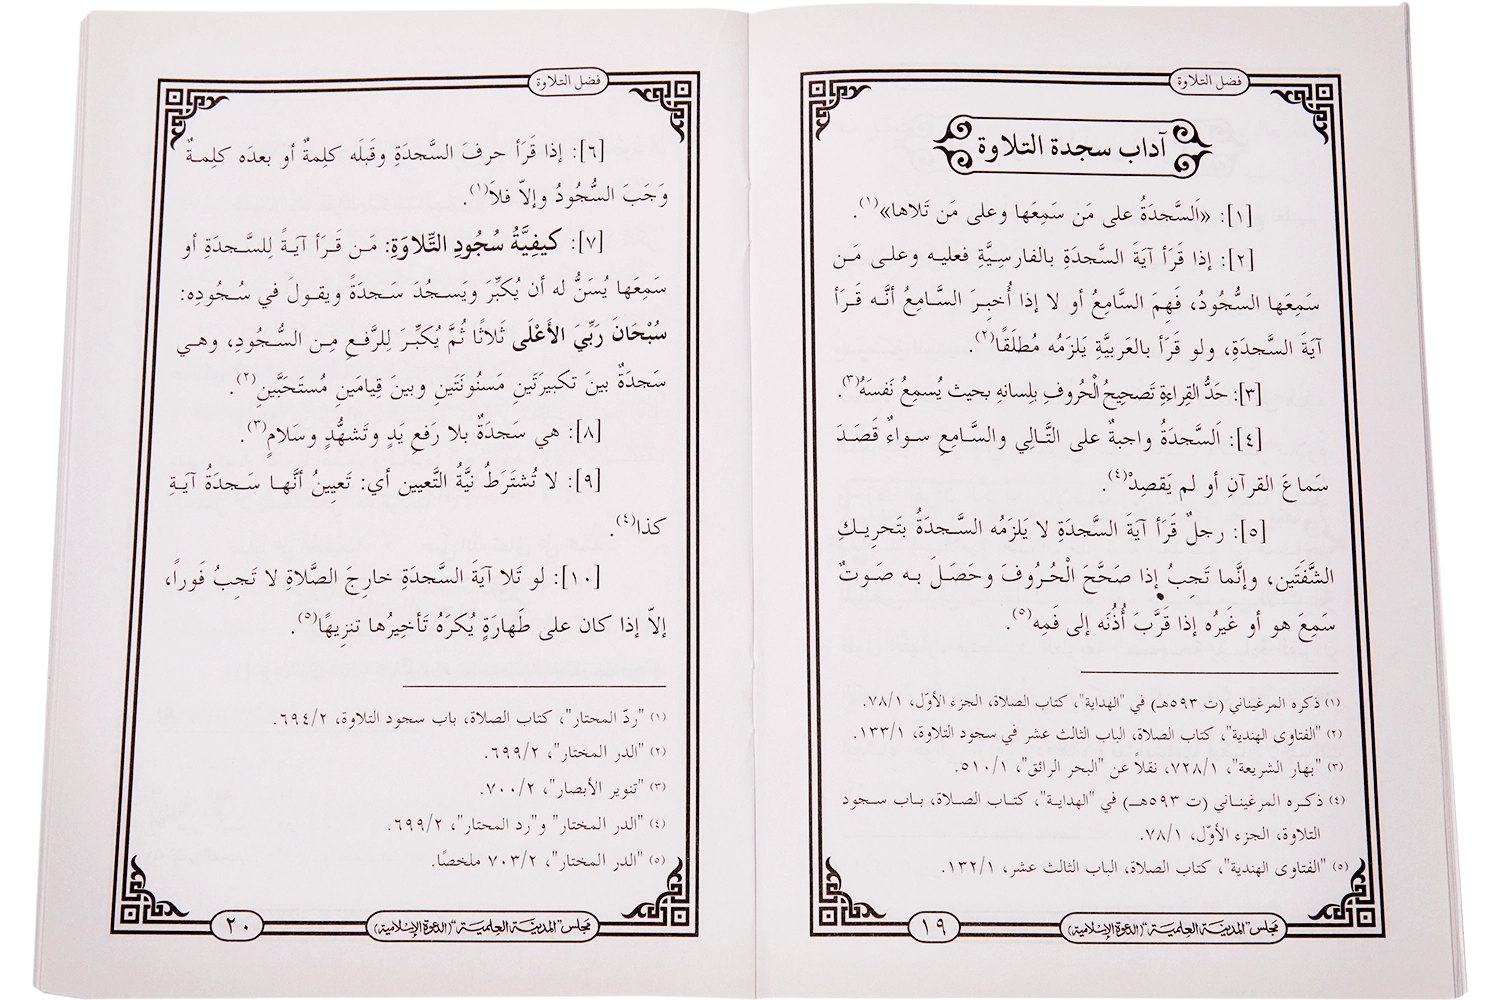 فضل التلاوة
آداب سجدة التلاوة
[١]: «اَلسَّجدَةُ على مَن سَمِعَها وعلى مَن تَلاها»(١).
[٢]: إذا قَرَأ آيَةَ السَّجدَةِ بالفارسِيَّةِ فعليه وعلى مَن
سَمِعَها السُّجُودُ، فَهِمَ السَّامِعُ أو لا إذا أُخبِرَ السَّامِعُ أنَّه قَرَأ
آيَةَ السَّجدَةِ، ولو قَرَأ بالعَربيَّةِ يَلزَمُه مُطلَقًا(٢).
[٣]: حَدُّ القِراءةِ تَصحِيحُ الْحُروفِ بِلسانهِ بحيث يُسمِعُ نَفسَهُ(٣).
[٤]: اَلسَّجدَةُ واجبةٌ على التَّالِي والسَّامِعِ سواءٌ قَصَدَ
سَماعَ القرآنِ أو لم يَقصِدْ(٤).
[٥]: رجلٌ قَرَأ آيَةَ السَّجدَةِ لا يَلزَمُه السَّجدَةُ بتَحرِيكِ
الشَّفَتَين، وإنَّما تَجِبُ إذا صَحَّحَ الْحُروفَ وحَصَلَ به صَوتٌ
سَمِعَ هو أو غَيرُه إذا قَرَّبَ أُذُنَه إلى فَمِه(٥).
(١) ذكره المرغيناني (ت ٥٩٣هـ) في "الهداية"، كتاب الصلاة، الجزء الأوّل، ٧٨/١.
(٢) "الفتاوى الهندية"، كتاب الصلاة، الباب الثالث عشر في سجود التلاوة، ١٣٣/١.
(٣) "بهار الشريعة"، ٧٢٨/١، نقلاً عن "البحر الرائق"، ٥١٠/١.
(٤) ذكره المرغيناني (ت ٥٩٣هـ) في "الهداية"، كتاب الصلاة، باب سجود
التلاوة، الجزء الأوّل، ٧٨/١.
(٥) "الفتاوى الهندية"، كتاب الصلاة، الباب الثالث عشر، ١٣٢/١.
مجلس "المدينة العلمية" (الدعوة الإسلامية)
١٩
فضل التلاوة
[٦]: إذا قَرَأ حرفَ السَّجدَةِ وقَبلَه كلِمةٌ أو بعدَه كلِمةٌ
وَجَبَ السُّجُودُ وإلاّ فلاَ(١).
[٧]: كَيفِيَّةُ سُجُودِ التِّلاوَةِ: مَن قَرَأ آيَةً لِلسَّجدَةِ أو
سَمِعَها يُسَنُّ له أن يُكبِّرَ ويَسجُدَ سَجدَةً ويقولَ في سُجُودِه:
سُبْحَانَ رَبِّيَ الأَعْلَى ثَلاثًا ثُمَّ يُكبِّرَ لِلرَّفعِ مِن السُّجُودِ، وهي
سَجدَةٌ بينَ تكبيرَتَينِ مَسنُونَتَينِ وبينَ قِيامَينِ مُستَحَبَّينِ(٢).
[٨]: هي سَجدَةٌ بلا رَفعِ يَدٍ وتَشهُّدٍ وسَلامٍ(٣).
[٩]: لا تُشتَرَطُ نيَّةُ التَّعيين أي: تَعيِينُ أنَّها سَجدَةُ آيَةِ
كذا(٤).
[١٠]: لو تَلا آيَةَ السَّجدَةِ خارِجَ الصَّلاةِ لا تَجِبُ فَوراً،
إلاّ إذا كان على طَهارَةٍ يُكرَهُ تَأخِيرُها تنزِيهًا(٥).
(١) "ردّ المحتار"، كتاب الصلاة، باب سجود التلاوة، ٦٩٤/٢.
(٢) "الدر المختار"، ٦٩٩/٢.
(٣) "تنوير الأبصار"، ٧٠٠/٢.
(٤) "الدر المختار" و"رد المحتار"، ٦٩٩/٢.
(٥) "الدر المختار"، ٧٠٣/٢ ملخصًا.
مجلس "المدينة العلمية" (الدعوة الإسلامية)
٢٠